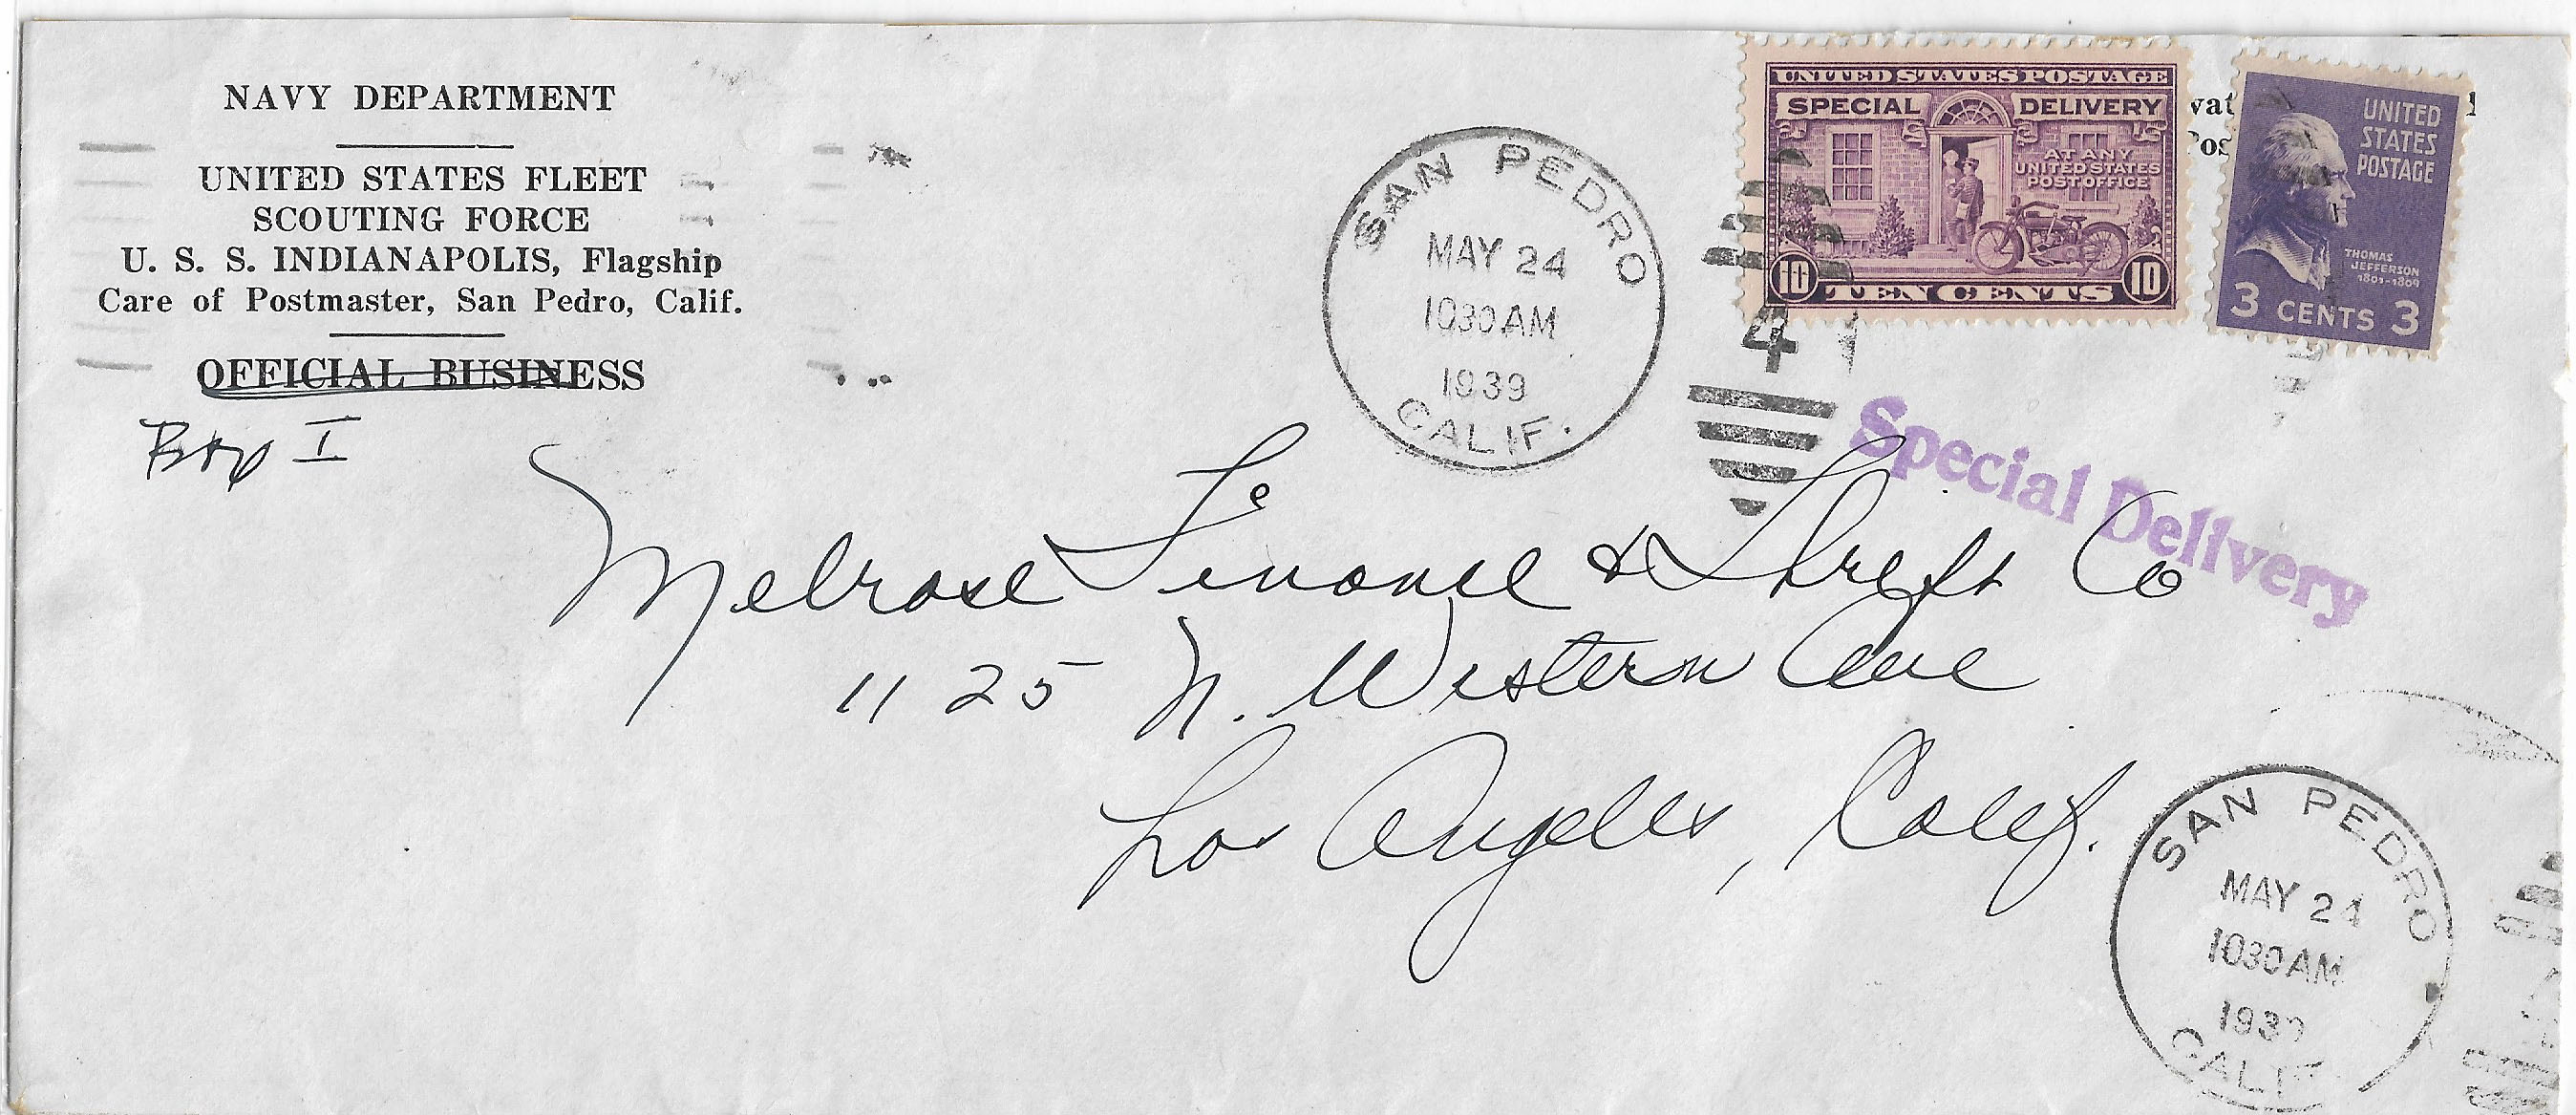 NAVY DEPARTMENT
UNITED STATES FLEET
SCOUTING FORCE
U. S. S. INDIANAPOLIS, Flagship
Care of Postmaster, San Pedro, Calif.
OFFICIAL BUSINESS
I
SAN PEDRO
MAY 24
1030AM
1939
CALIF.
4
UNITED STATES POSTAGE
SPECIAL DELIVERY
AT ANY
UNITED STATES
POST OFFICE
10 TEN CENTS 10
UNITED
STATES
POSTAGE
THOMAS
JEFFERSON
1801-1809
3 CENTS 3
Special Delivery
Melrose Finance & Thrift Co
1125 N. Western Ave
Los Angeles, Calif.
SAN PEDRO
MAY 24
1030AM
1939
CALIF.